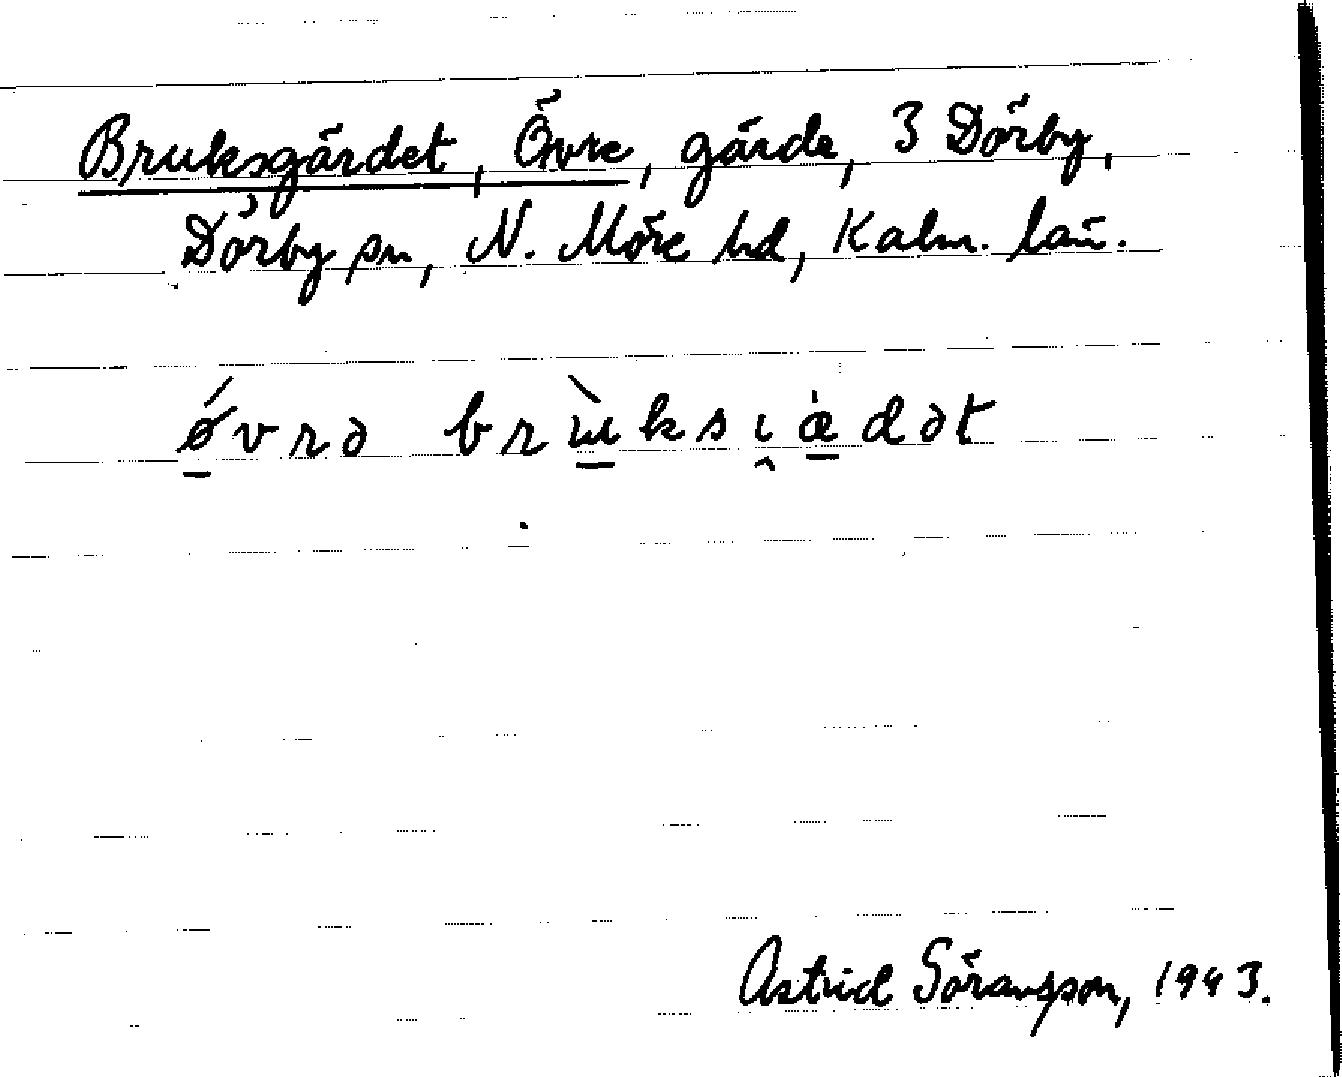 Bruksgärdet, Övre, gärde, 3 Dörby,
Dörby sn, N. Möre hd, Kalm. län.
ǿ̱vrə brɯ̱̀ksɩ̯æ̱̇dət
Astrid Göransson, 1943.